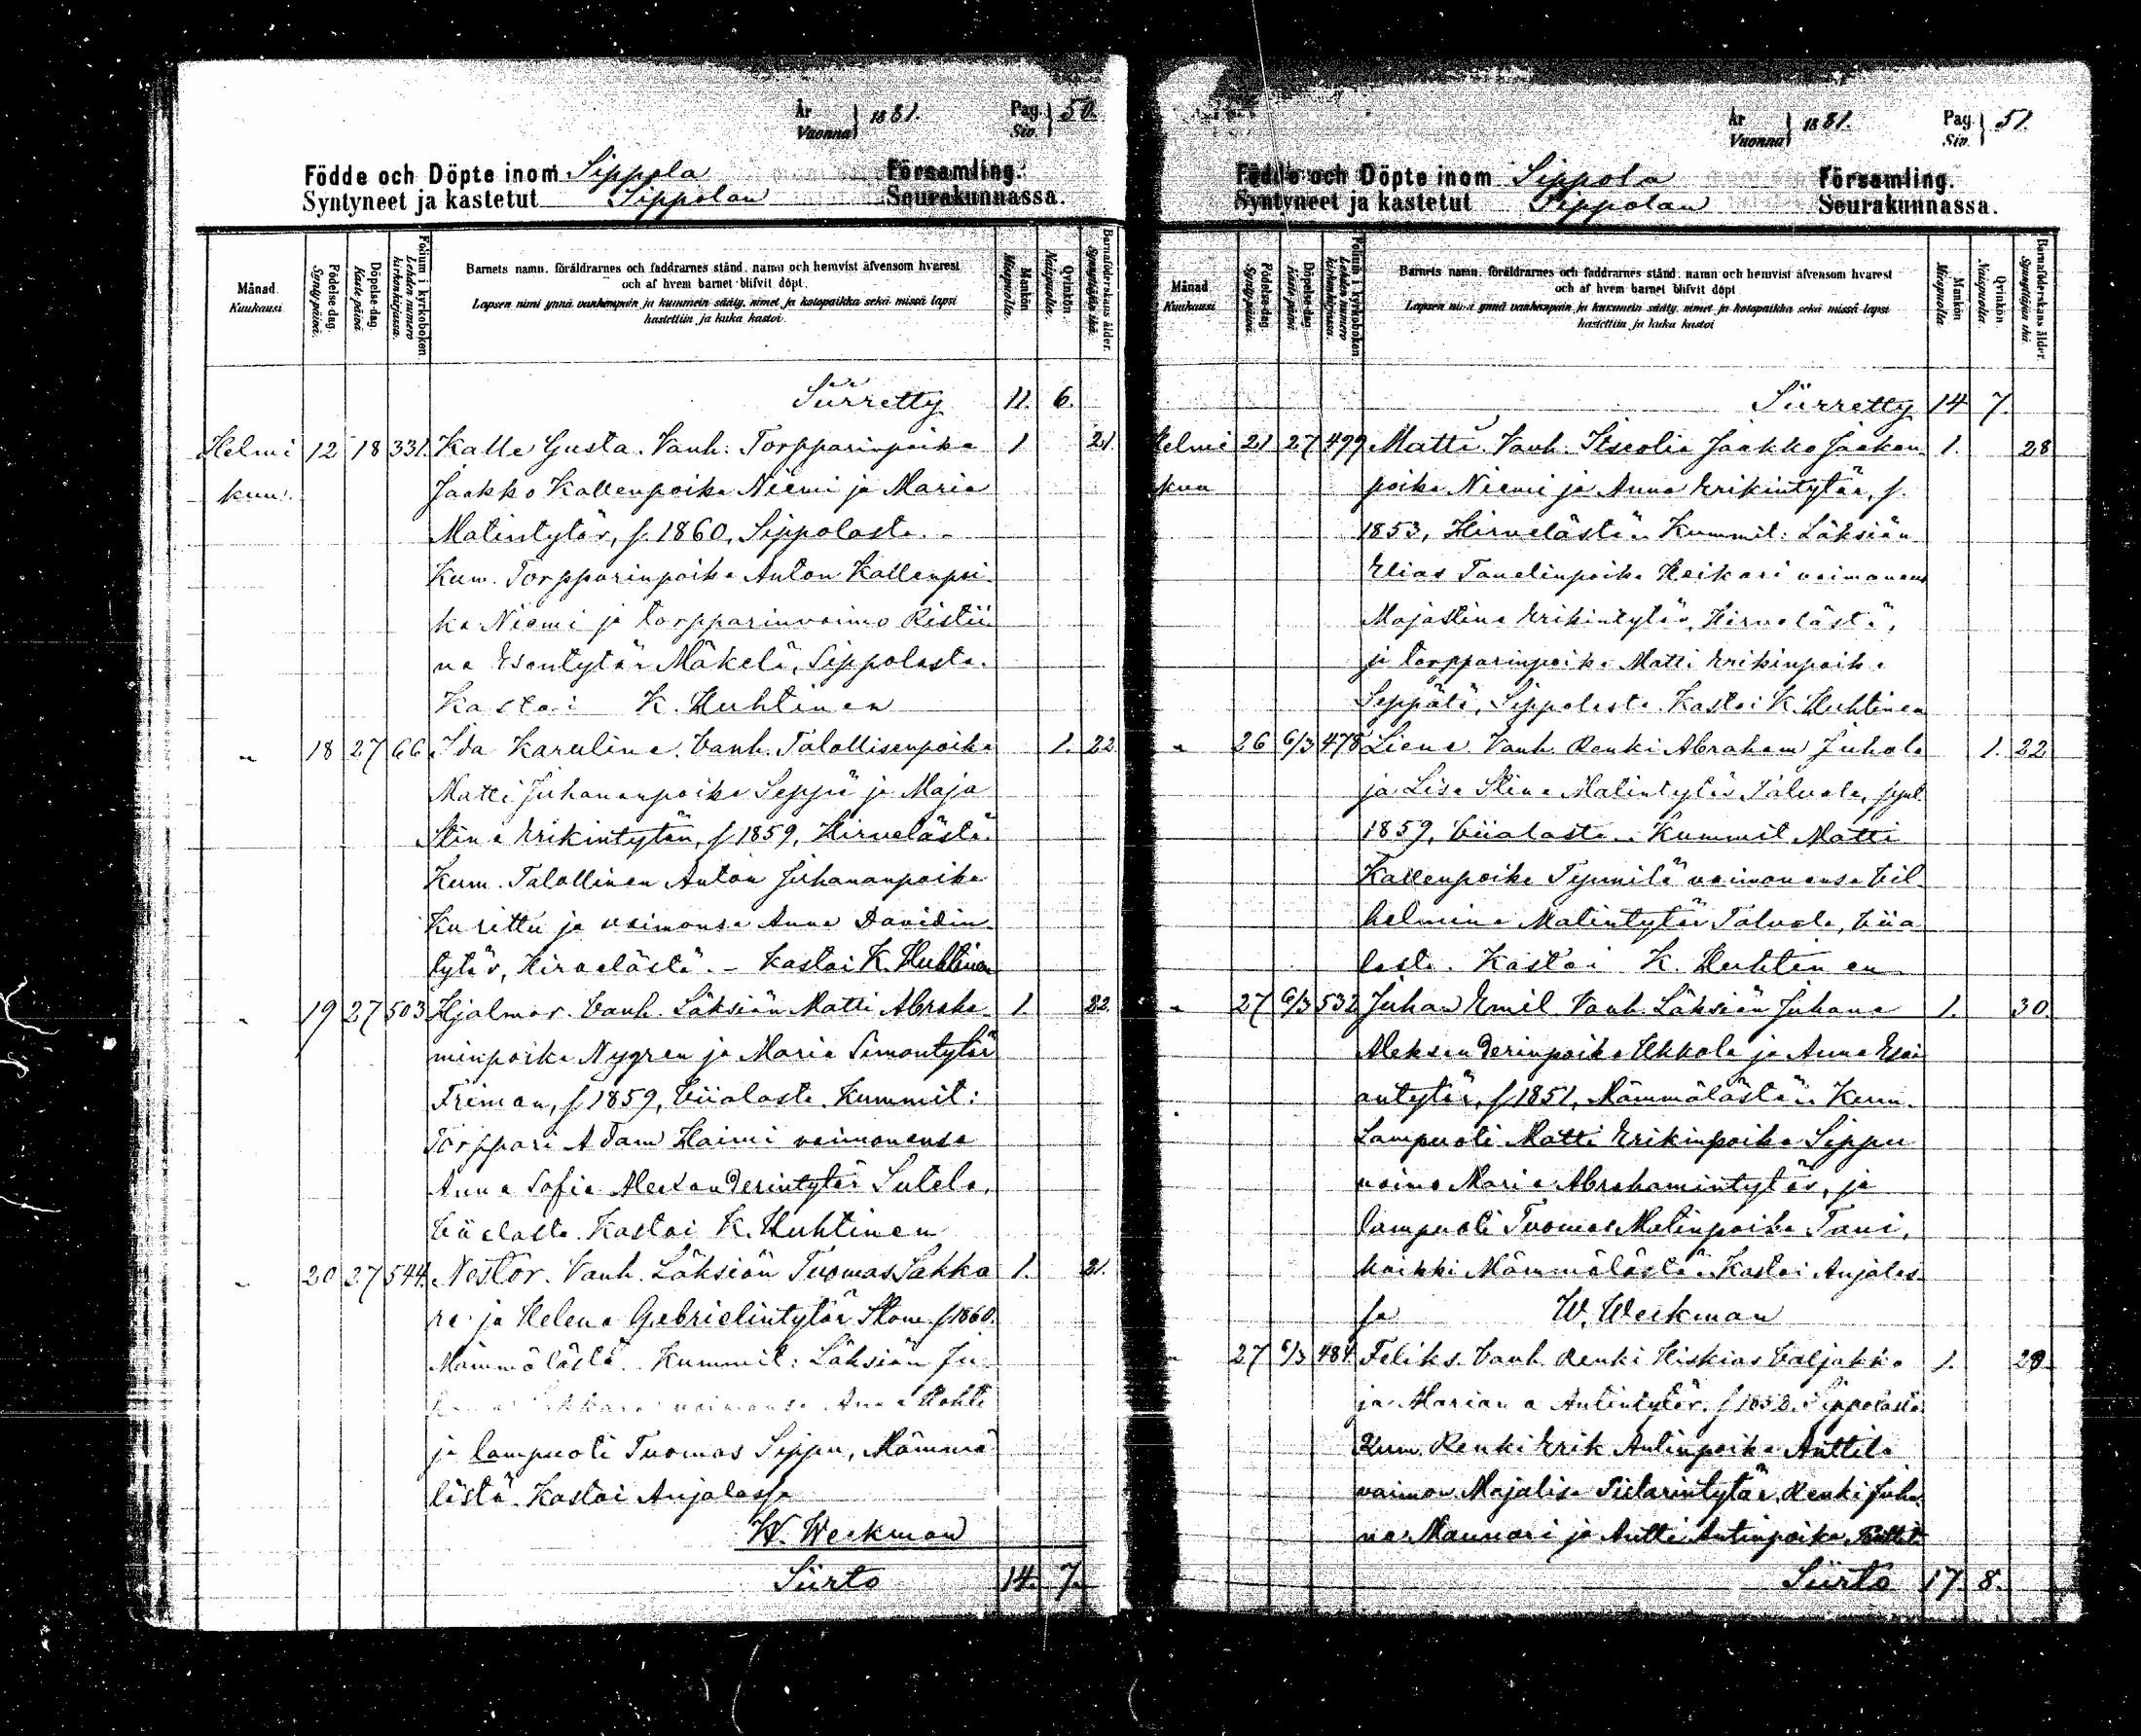 År
Vuonna } 1881.
Pag.
Siv. } 50.
Födde och Döpte inom Sippola Församling.
Syntyneet ja kastetut Sippolan Seurakunnassa.
Månad. Kuukausi.
Födelse-dag. Synty-päivä.
Döpelse-dag. Kaste-päivä.
Folium i kyrkoboken Lehden numero kirkonkirjassa.
Barnets namn, föräldrarnes och faddrarnes stånd, namn och hemvist äfvensom hvarest
och af hvem barnet blifvit döpt.
Lapsen nimi ynnä vanhempain ja kummein sääty, nimet ja kotopaikka sekä missä lapsi
kastettiin ja kuka kastoi.
Mankön Miespuolta.
Qvinkön. Naispuolta.
Barnaföderskans ålder. Synnyttäjän ikä.
Siirretty 11. 6.
Helmi 12 18 331. Kalle Gusta. Vanh. Torpparinpoika 1 21.
kuu. Jaakko Kallenpoika Niemi ja Maria
Matintytär, s. 1860, Sippolasta. -
Kum. Torpparinpoika Anton Kallenpoi-
ka Niemi ja torpparinvaimo Ristii
na Esantytär Mäkelä, Sippolasta.
Kastoi K. Huhtinen
" 18 27 66 Ida Karulina. Vanh. Talollisenpoika 1. 22
Matti Juhananpoika Seppä ja Maja
Stina Erikintytär, s 1859, Hirvelästä.
Kum. Talollinen Anton Juhananpoika
Kurittu ja vaimonsa Anna Davidin-
tytär, Hirvelästä. - Kastoi K. Huhtinen
" 19 27 503 Hjalmar. Vanh. Läksiän Matti Abraha- 1. 22.
minpoika Nygren ja Maria Simontytär
Friman, s. 1859, Viialasta. Kummit:
Torppari Adam Haimi vaimonensa
Anna Sofia Aleksanderintytär Sutela,
Viialasta. Kastoi K. Huhtinen
" 20 27 544. Nestor. Vanh. Läksiän Tuomas Sakka 1. 21.
ra ja Helena Gabrielintytär Skom s 1860.
Mämmälästä. Kummit: Läksiän Ju-
vaimonsa Anna
ja lampuoti Tuomas Sippu, Mämmä
lästä. Kastoi Anjalassa
W. Weckman
Siirto 14. 7.
År
Vuonna } 1881.
Pag
Siv. } 51.
Födde och Döpte inom Sippola Församling.
Syntyneet ja kastetut Sippolan Seurakunnassa.
Månad Kuukausi
Födelse-dag Synty-päivä
Döpelse-dag Kaste-päivä
Folium i kyrkoboken Lehden numero kirkonkirjassa.
Barnets namn, föräldrarnes och faddrarnes stånd, namn och hemvist äfvensom hvarest
och af hvem barnet blifvit döpt
Lapsen nimi ynnä vanhempain ja kummein sääty, nimet ja kotopaikka sekä missä lapsi
kastettiin ja kuka kastoi
Mankön Miespuolta
Qvinkön Naispuolta
Barnaföderskans ålder. Synnyttäjän ikä
Siirretty 14 7.
Helmi 21 27 499 Matti. Vanh. Itseoliv Jaakko Jaakon- 1. 28
kuu poika Niemi ja Anna Erikintytär, s.
1853, Hirvelästä. Kummit: Läksiän
Elias Tanelinpoika Heikari vaimonens
Majastina Erikintytär, Hirvelästä,
ja torpparinpoika Matti Erikinpoika
Seppälä, Sippolasta. Kastoi K. Huhtinen
" 26 6/3 478 Liena. Vanh. Renki Abraham Juhola 1. 22
ja Lisa Stina Matintytär Talvala, synt.
1859, Viialasta. Kummit Matti
Kallenpoika Tynnilä vaimonensa Vil-
helmina Matintytär Talvala, Viia
lasta. Kastoi K. Huhtinen
" 27 6/3 532 Juhan Emil. Vanh. Läksiän Juhana 1. 30.
Aleksanderinpoika Ukkola ja Anna Esai
antytär, s 1851, Mämmälästä. Kum.
Lampuoti Matti Erikinpoika Sippu
vaimo Maria Abrahamintytär, ja
lampuoti Tuomas Matinpoika Tani,
kaikki Mämmälästä. Kastoi Anjalas-
sa W. Weckman
" 27 6/3 484 Feliks. Vanh. Renki Hiskias Valjakka 1. 29
ja Mariana Antintytär, s 1852. Sippolasta
Kum. Renki Erik Antinpoika Anttila
vaimon Majalisa Tiitarintytär, Renki Juha
na Mannari ja Antti Antinpoika Anttila
Siirto 17. 8.